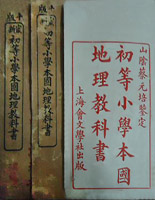 山陰蔡元培鑒定
初等小學本國
地理教科書
上海會文學社出版
初等小學本國地理教科書
初等小學本國地理教科書